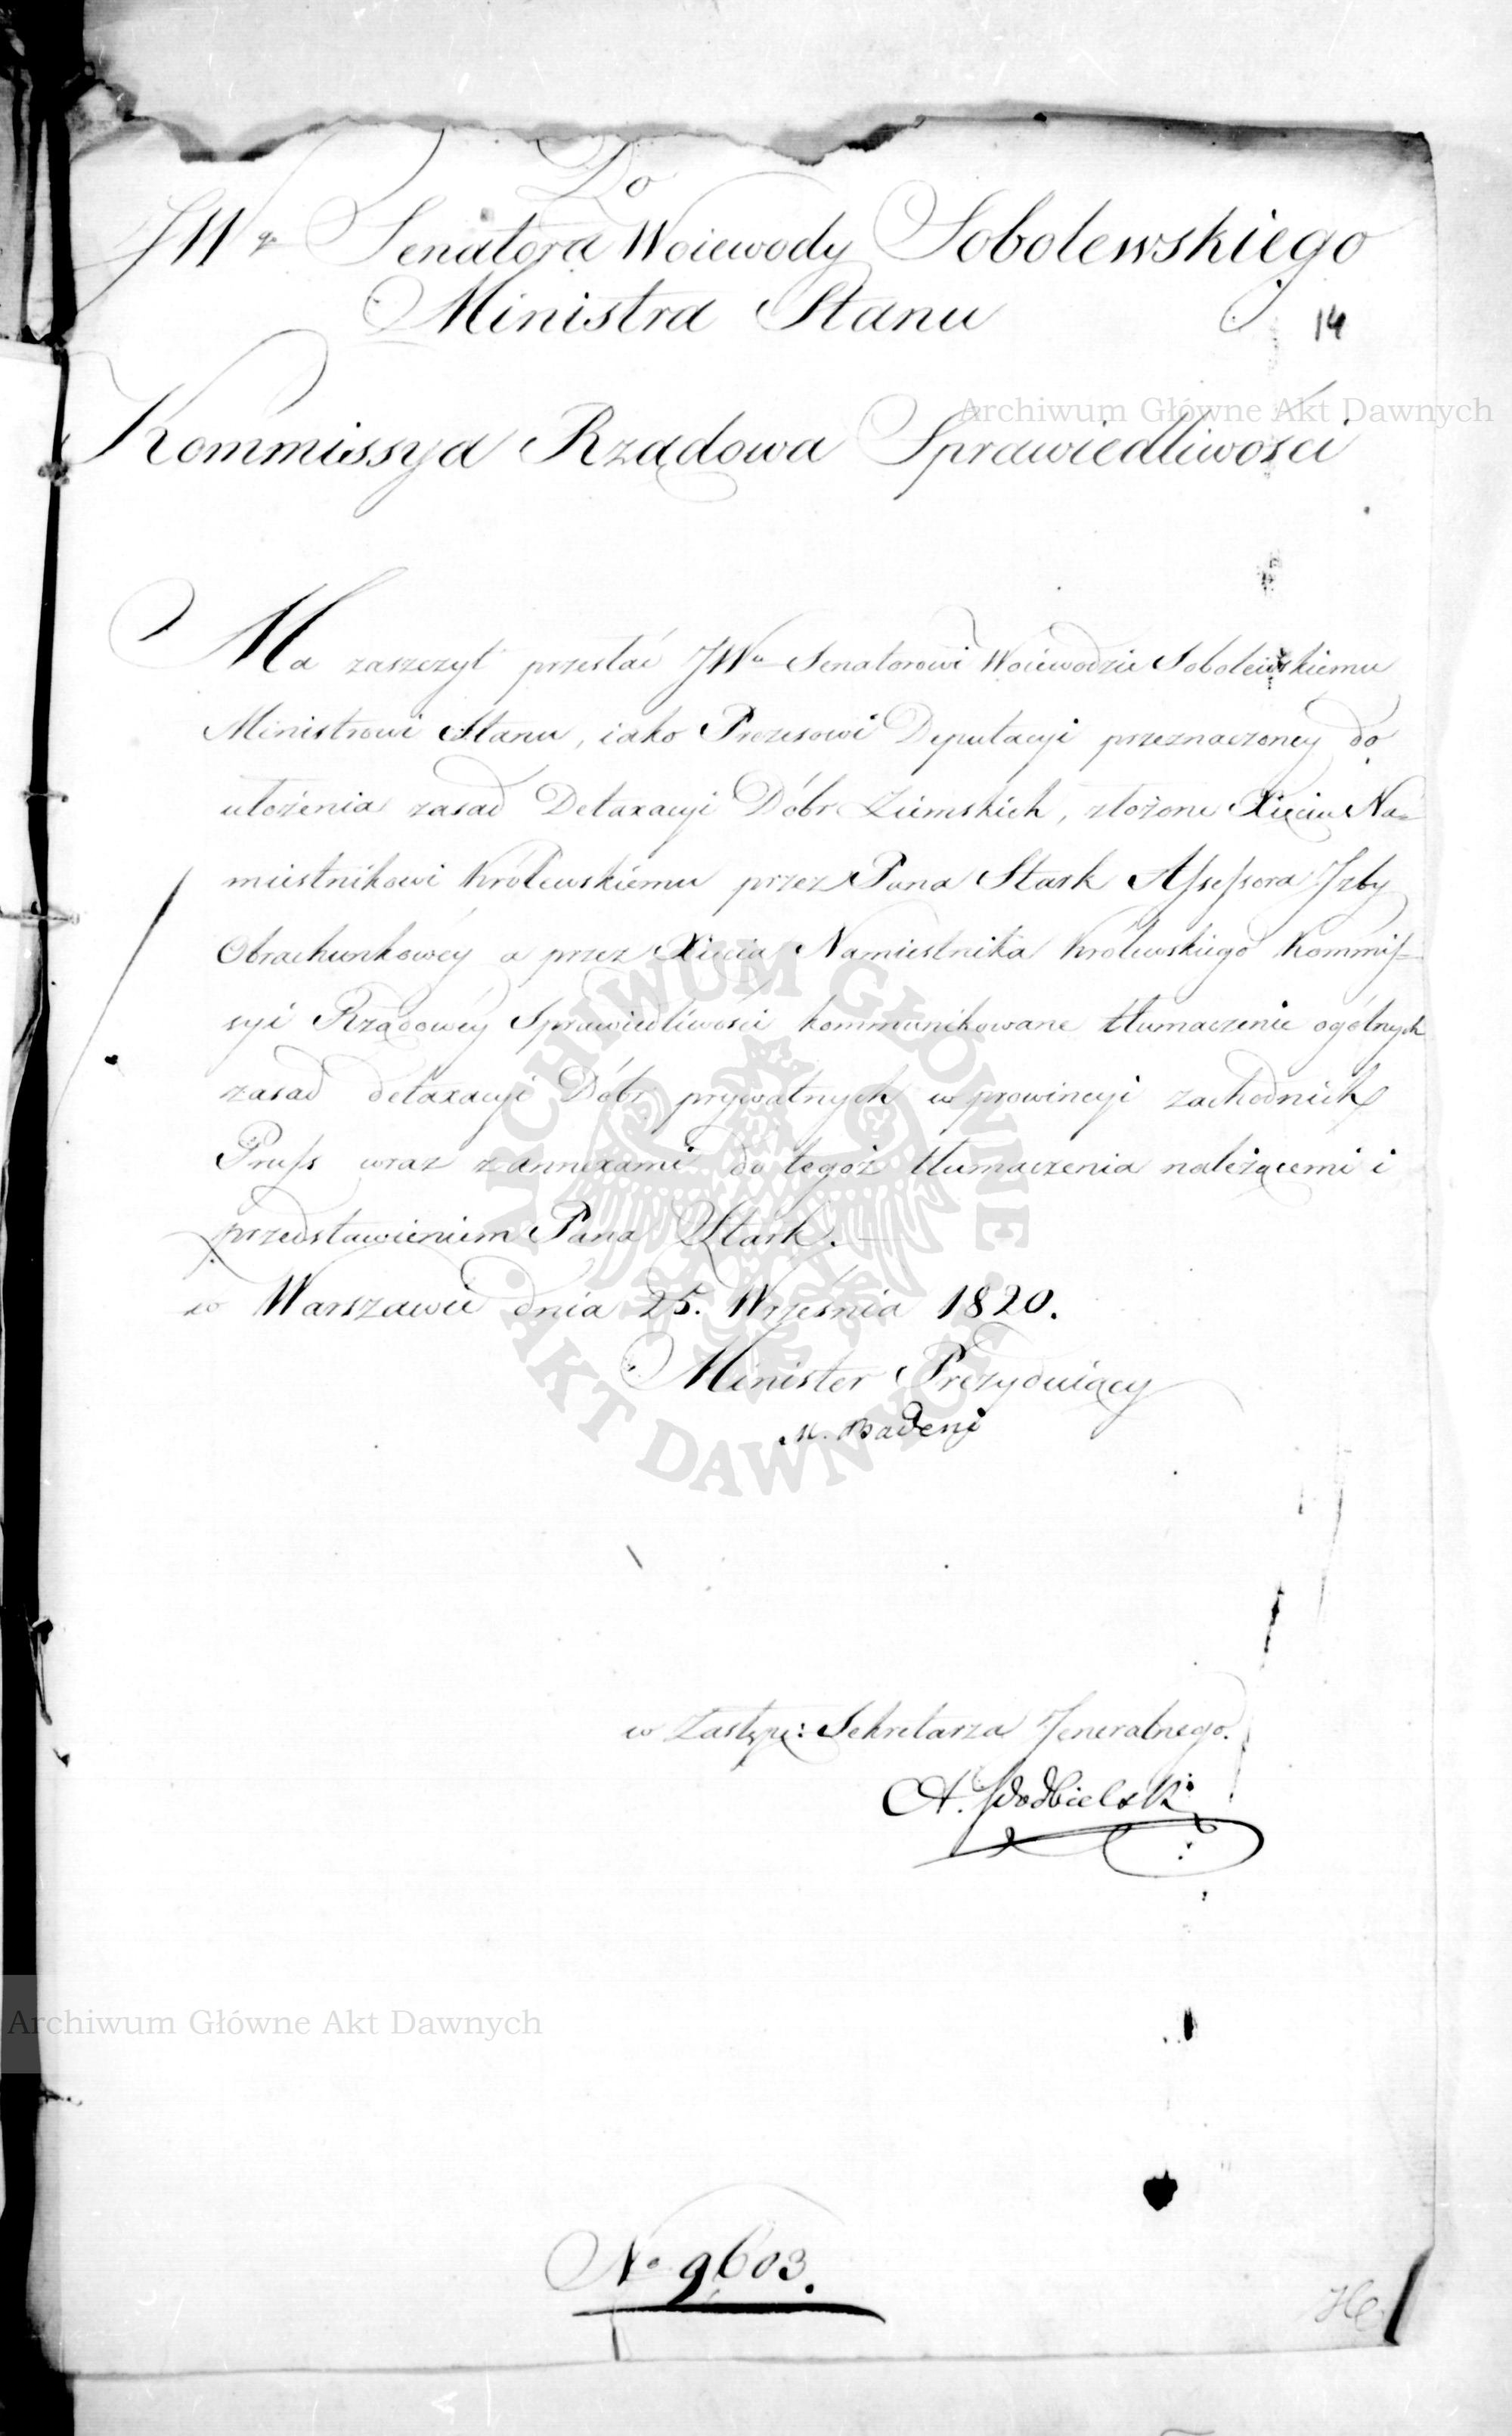 Do
JWo Senatora Woiewody Sobolewskiego
Ministra Stanu
14
Archiwum Główne Akt Dawnych
Kommissya Rządowa Sprawiedliwości
Ma zaszczyt przesłać JWu Senatorowi Woiewodzie Sobolewskiemu
Ministrowi Stanu, iako Prezesowi Deputacyi przeznaczoney do
ułożenia zasad Detaxacyi Dóbr Ziemskich, złożone Xięciu Na=
miestnikowi Królewskiemu przez Pana Stark Assessora Izby
Obrachunkowéy a przez Xięcia Namiestnika Królewskiego Kommis=
syi Rządowéy Sprawiedliwości kommunikowane tłumaczenie ogólnych
zasad detaxacyi Dóbr prywatnych w prowincyi zachodnich
Pruss wraz z annexami do tegoż tłumaczenia należącemi i
przedstawieniem Pana Stark.—
w Warszawie dnia 25. Września 1820.
Minister Prezyduiący
M. Badeni
ARCHIWUM GŁÓWNE AKT DAWNYCH
w Zastęp: Sekretarza Jeneralnego.
A. Podbielski
Archiwum Główne Akt Dawnych
No 9603.